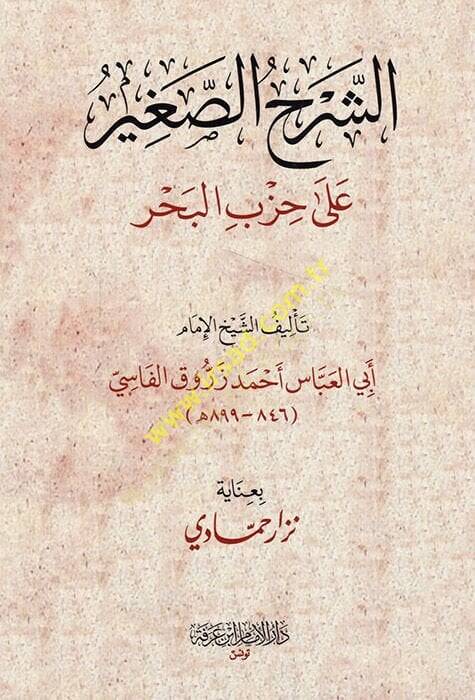 الشَّرْحُ الصَّغِيرُ
عَلَى حِزْبِ البَحْرِ
تَأْلِيفُ الشَّيْخِ الإِمَام
أَبِي العَبَّاسِ أَحْمَد زَرُّوق الفَاسِيّ
(٨٤٦-٨٩٩هـ)
بِعِنَايَة
نزار حمّادي
دَارُ الإمَام ابْن عَرَفَة
تونس